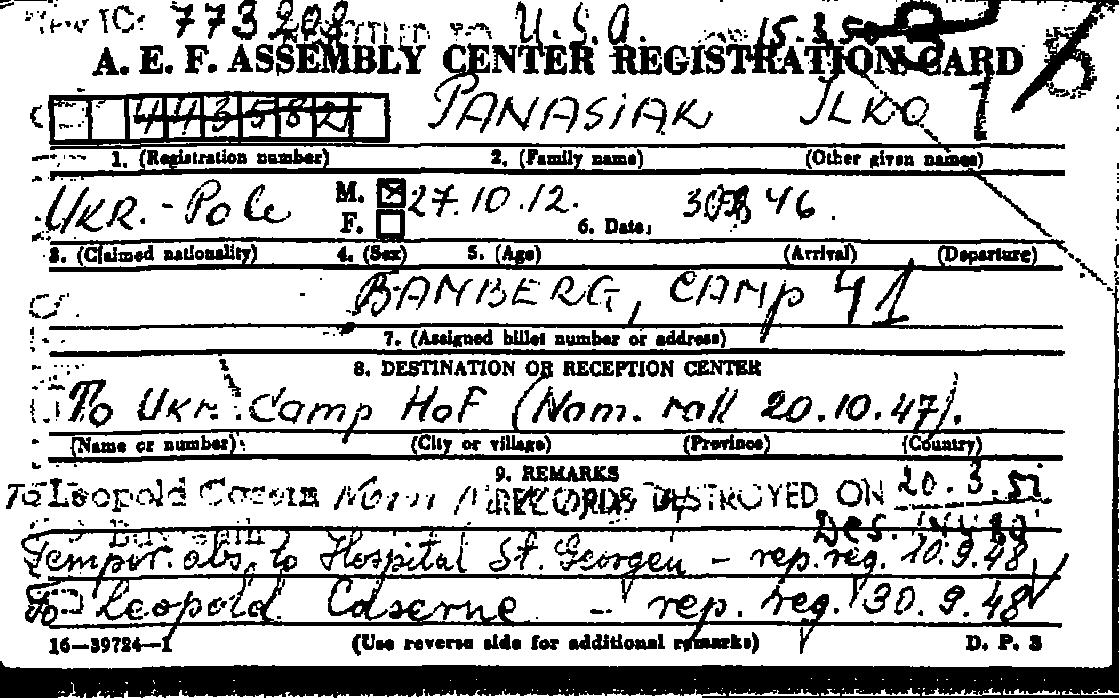 New IC: 773208 to U.S.A. 15.3.50
A. E. F. ASSEMBLY CENTER REGISTRATION CARD
443582 PANASIAK ILKO
1. (Registration number) 2. (Family name) (Other given names)
UKR.-Pole M. ☒ 27.10.12. 46.
F. ☐ 6. Date:
3. (Claimed nationality) 4. (Sex) 5. (Age) (Arrival) (Departure)
BAMBERG, CAMP 41
7. (Assigned billet number or address)
8. DESTINATION OR RECEPTION CENTER
To Ukr. Camp HOF (Nom. roll 20.10.47).
(Name or number) (City or village) (Province) (Country)
9. REMARKS
To Leopold Casern Nom RECORDS DESTROYED ON 20.3.51
Tempor. abs. to Hospital St. Georgen - rep. reg. 10.9.48
To Leopold Caserne - rep. reg. 30.9.48
16—39724—1 (Use reverse side for additional remarks) D. P. 3